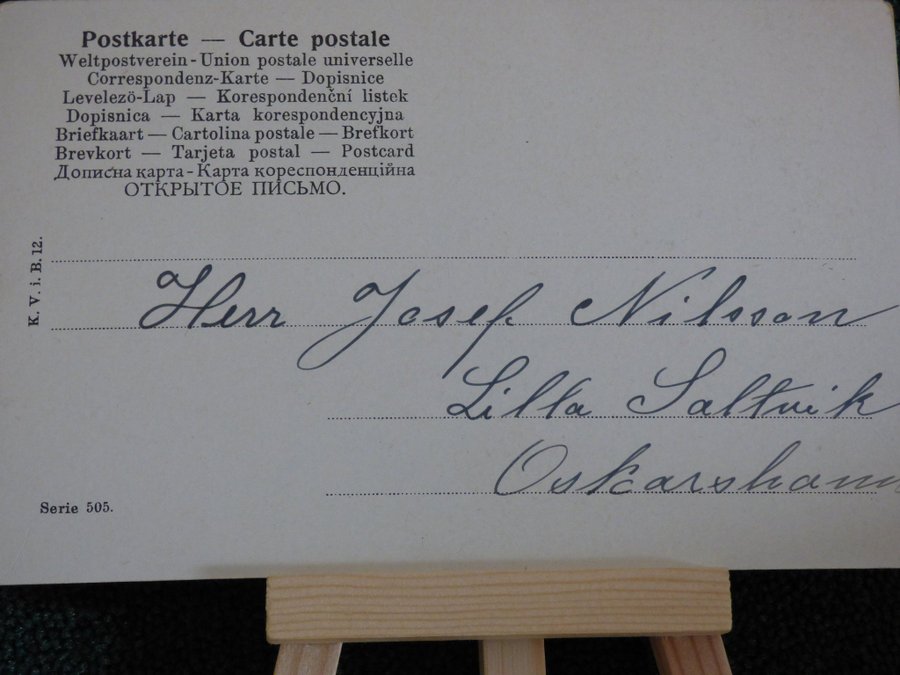 Postkarte — Carte postale
Weltpostverein - Union postale universelle
Correspondenz-Karte — Dopisnice
Levelezö-Lap — Korespondenční listek
Dopisnica — Karta korespondencyjna
Briefkaart — Cartolina postale — Brefkort
Brevkort — Tarjeta postal — Postcard
Дописна карта - Карта кореспонденційна
ОТКРЫТОЕ ПИСЬМО.
K. V. i. B. 12.
Herr Josef Nilsson
Lilla Saltvik
Oskarshamn
Serie 505.